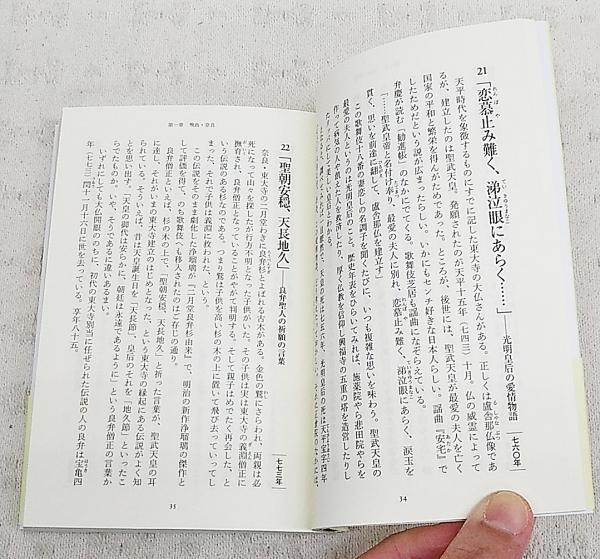 21 「恋慕止み難く、涕泣眼にあらく……」――光明皇后の愛情物語 七六〇年
れんぼや
ていきゅうまなこ
天平時代を象徴するものにすでに記した東大寺の大仏さんがある。正しくは盧舎那仏像であ
るしゃなぶつ
るが、建立したのは聖武天皇。発願されたのが天平十五年（七四三）十月。仏の威霊によって
国家の平和と繁栄を得んがためであった。ところが、後世には、聖武天皇が最愛の夫人を亡く
したためだという説が広まったらしい。いかにもセンチ好きな日本人らしい。謡曲『安宅』で
あたか
弁慶が読む『勧進帳』のなかにでてくる。歌舞伎芝居も謡曲になぞらえている。
「……聖武皇帝と名付け奉り、最愛の夫人に別れ、恋慕止み難く、涕泣眼にあらく、涙玉を
貫く、思いを前途に翻して、盧舎那仏を建立す」
この歌舞伎十八番の妻恋しの名調子を聞くたびに、いつも複雑な思いを味わう。聖武天皇の
最愛の夫人というのは光明皇后のこと。歴史年表をひらいてみれば、施薬院やら悲田院やらを
作って病める人や飢えた人を救済したり、厚く仏教を信仰し興福寺の五重の塔を造営したりし
34
第一章 飛鳥・奈良
22 「聖朝安穏、天長地久」――良弁聖人の祈願の言葉 七七三年
奈良・東大寺の二月堂わきに良弁杉とよばれる古木がある。金色の鷲にさらわれ、両親は必
ろうべんすぎ
死になって山中を捜したが行方不明となった子供がいた。その子供は実は東大寺の義淵僧正に
撫育され、良弁僧正となっていることがやがて判明する。そして親子はめでたく再会した、と
いう伝説のある杉である。つまり鷲は子供を高い杉の木の上に置いて飛び去っていってし
まった。それで子供は義淵に救われた、という。
この伝説をそのまま劇化した浄瑠璃が『二月堂良弁杉由来』で、明治の新作浄瑠璃の傑作と
して評価を得て、のち歌舞伎へも移入されたのはご存じの通り。
良弁僧正といえば、杉の木の上で、「聖朝安穏、天長地久」と祈った言葉が、聖武天皇の耳
に達し、それがいまの東大寺建立のはじめとなった、という東大寺の縁起にある伝説がよく知
られている。そういえば、昔は天皇誕生日を「天長節」、皇后のそれを「地久節」といったこ
とを思い出す。「天皇の御代は安らかに、朝廷は永遠であるように」という良弁僧正の言葉か
らでたものか。いや、そうであるに違いあるまい。
いずれにしても大仏開眼ののちに、初代の東大寺別当に任ぜられた伝説の人の良弁は宝亀四
ほうき
年（七七三）閏十一月十六日に世を去っている。享年八十五。
35